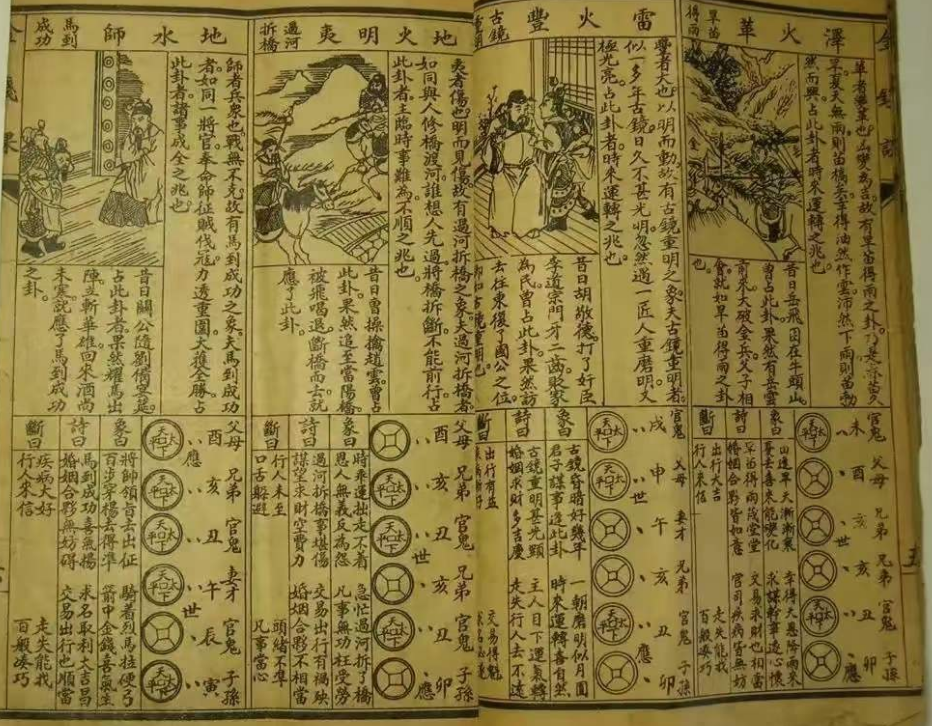 金錢課
澤火革
旱苗
得雨
革者變革也。凶變為吉。故有旱苗得雨之卦。乃是禾苗久
旱。夏天無雨。則苗槁矣。幸得油然作雲。沛然下雨。則苗勃
然而興。占此卦者。時來運轉之兆也。
昔日岳飛困在牛頭山
曾占此卦。果然有岳雲
前來大破金兵。父子相
會。就如旱苗得雨之卦
也。
官鬼 父母 兄弟 兄弟 官鬼 子孫
未 酉 亥 亥 丑 卯
世 應
象曰
旱天漸漸衰 幸得天恩降雨來
憂去喜來能變化 求謀幹事遂心懷
詩曰
旱苗得雨 堂堂 交易求財也相當
婚姻合夥皆如意 官司疾病皆無妨
斷曰
出行大吉 走失能找
行人來信 百般湊巧
雷火豐
古鏡
豐者大也。以明而動。故有古鏡重明之象。夫古鏡重明者。
似一多年古鏡。日久不甚光明。忽然遇一匠人重磨明。又
極光亮。占此卦者。時來運轉之兆也。
昔日胡敬德。打了奸臣
李道宗門牙二齒。貶家
為民。曾占此卦。果然訪
去。往東復了國公之位。
官鬼 父母 妻才 兄弟 官鬼 子孫
戌 申 午 亥 丑 卯
世 應
象曰
古鏡昏暗好幾年 一朝磨明似月圓
君子謀事逢此卦 時來運轉喜自然
詩曰
古鏡重明甚光顯 主人目下運氣轉
婚姻求財多吉慶 走失行人去不遠
斷曰
出行有益
地火明夷
過河
拆橋
夷者傷也。明而見傷。故有過河拆橋之象。夫過河拆橋者
如同與人修橋渡河。誰想人先過。將橋拆斷。不能前行。占
此卦者。主臨時事難為。不順之兆也。
昔日曾操擒趙雲。曾占
此卦。果然追至當陽橋
被飛喝退。斷橋而去。就
應了此卦。
父母 兄弟 官鬼 兄弟 官鬼 子孫
酉 亥 丑 亥 丑 卯
世 應
象曰
時乖運拙走不着 急忙過河拆了橋
恩人無義反為怨 凡事無功枉受勞
詩曰
過河拆橋事堪傷 交易出行有禍殃
謀望求財空費力 婚姻合夥不相當
斷曰
行人未至 頭緒不準
口舌躲避 凡事當心
地水師
馬到
成功
師者兵衆也。戰無不克。故有馬到成功之象。夫馬到成功
者。如同一將官奉命師征賊伐冠。力透重圍。大獲全勝。占
此卦者。諸事成全之兆也。
昔日關公隨劉備
占此卦者。果然耀馬出
陣。並斬華雄回來。酒尚
未寒。就應了馬到成功
之卦。
父母 兄弟 官鬼 妻才 官鬼 子孫
酉 亥 丑 午 辰 寅
應 世
象曰
將帥領旨去出征 騎着烈馬拉硬弓
百步穿楊去得準 箭中金錢喜氣生
詩曰
馬到成功喜氣揚 求名取利大吉昌
婚姻合夥無妨碍 交易出行也順當
斷曰
疾病大好 走失能找
行人來信 百般湊巧